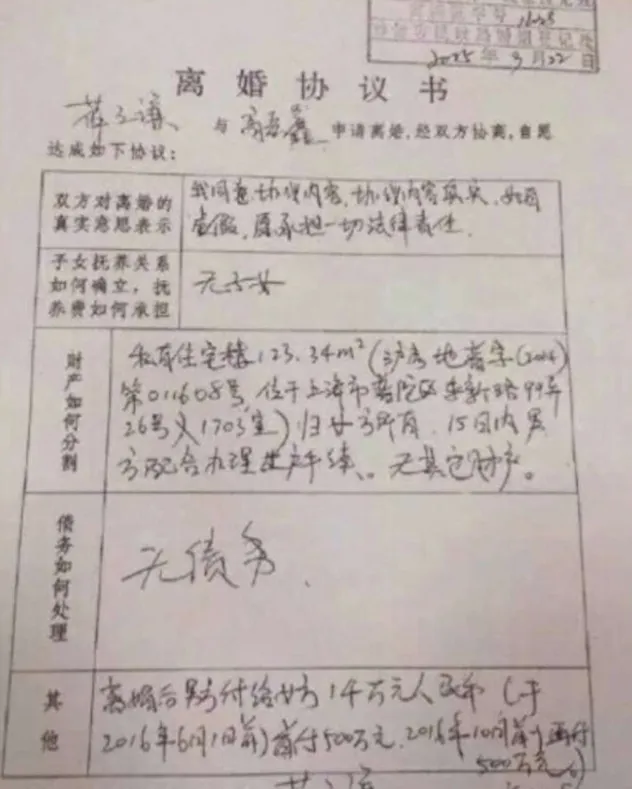 2015年9月22日
离婚协议书
薛之谦 与 高磊鑫 申请离婚,经双方协商,自愿
达成如下协议:
双方对离婚的
真实意思表示
我同意协议内容,协议内容真实,如有
虚假,愿承担一切法律责任.
子女抚养关系
如何确立,抚
养费如何承担
无子女
财产如何分割
私有住宅楼123.34m²(沪房地普字(2014)
第011608号,位于上海市普陀区 新路99弄
26号 1703室)归女方所有.15日内男
方配合办理过户手续、无其它财产。
债务如何处理
无债务.
其他
离婚后男方付给女方1千万元人民币(于
2016年6月1日前)首付500万元.2016年10月前再付
500万元)